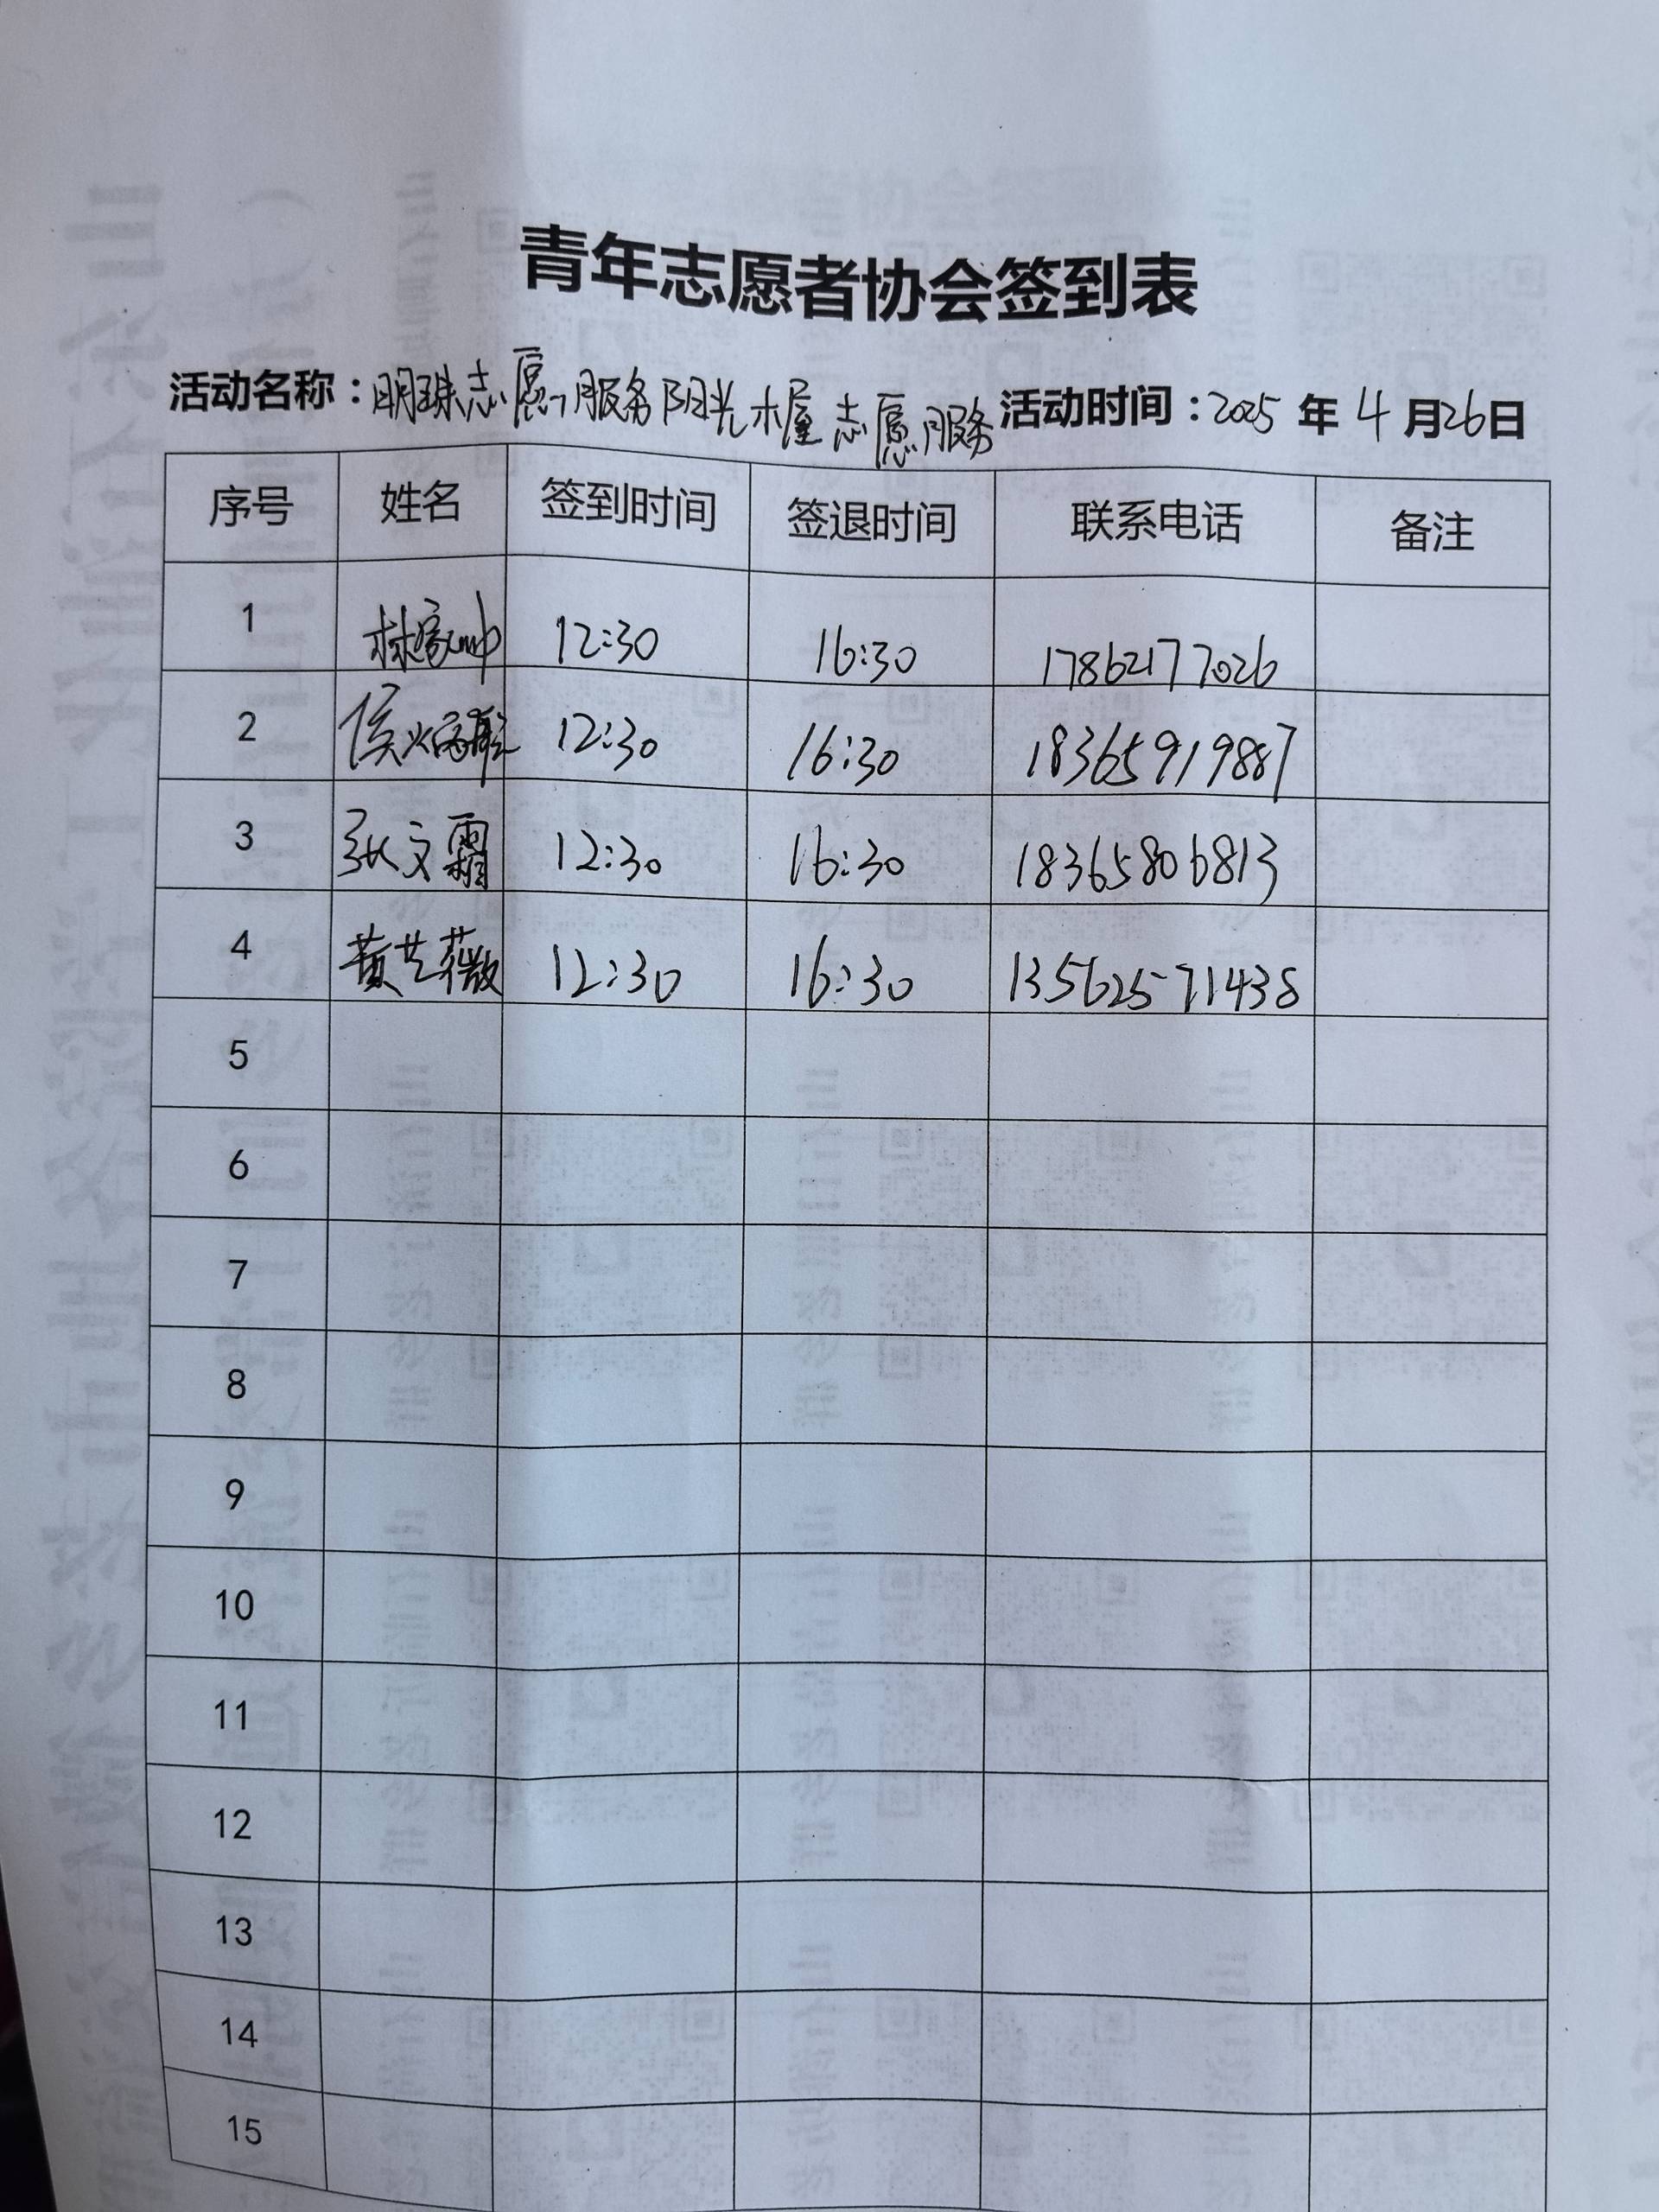 青年志愿者协会签到表
活动名称：明珠志愿服务阳光木屋志愿服务 活动时间：2025年4月26日
序号 姓名 签到时间 签退时间 联系电话 备注
1 12:30 16:30 17862177026
2 侯炳聪 12:30 16:30 18365919887
3 张文霜 12:30 16:30 18365806813
4 黄芝薇 12:30 16:30 13562571438
5
6
7
8
9
10
11
12
13
14
15